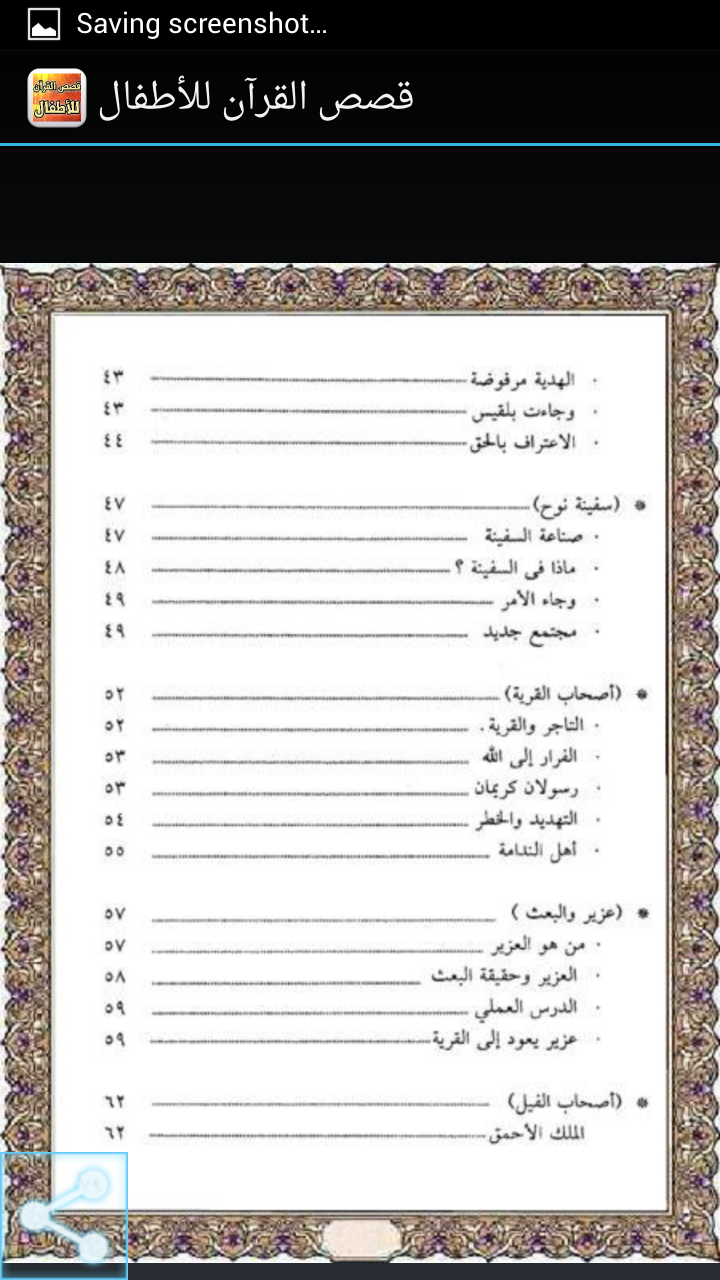 Saving screenshot...
قصص القرآن للأطفال
قصص القرآن
للأطفال
· الهدية مرفوضة ٤٣
· وجاءت بلقيس ٤٣
· الاعتراف بالحق ٤٤
* (سفينة نوح) ٤٧
· صناعة السفينة ٤٧
· ماذا فى السفينة ؟ ٤٨
· وجاء الأمر ٤٩
· مجتمع جديد ٤٩
* (أصحاب القرية) ٥٢
· التاجر والقرية. ٥٢
· الفرار إلى الله ٥٣
· رسولان كريمان ٥٣
· التهديد والخطر ٥٤
· أهل الندامة ٥٥
* (عزير والبعث ) ٥٧
· من هو العزير ٥٧
· العزير وحقيقة البعث ٥٨
· الدرس العملي ٥٩
· عزير يعود إلى القرية ٥٩
* (أصحاب الفيل) ٦٢
الملك الأحمق ٦٢